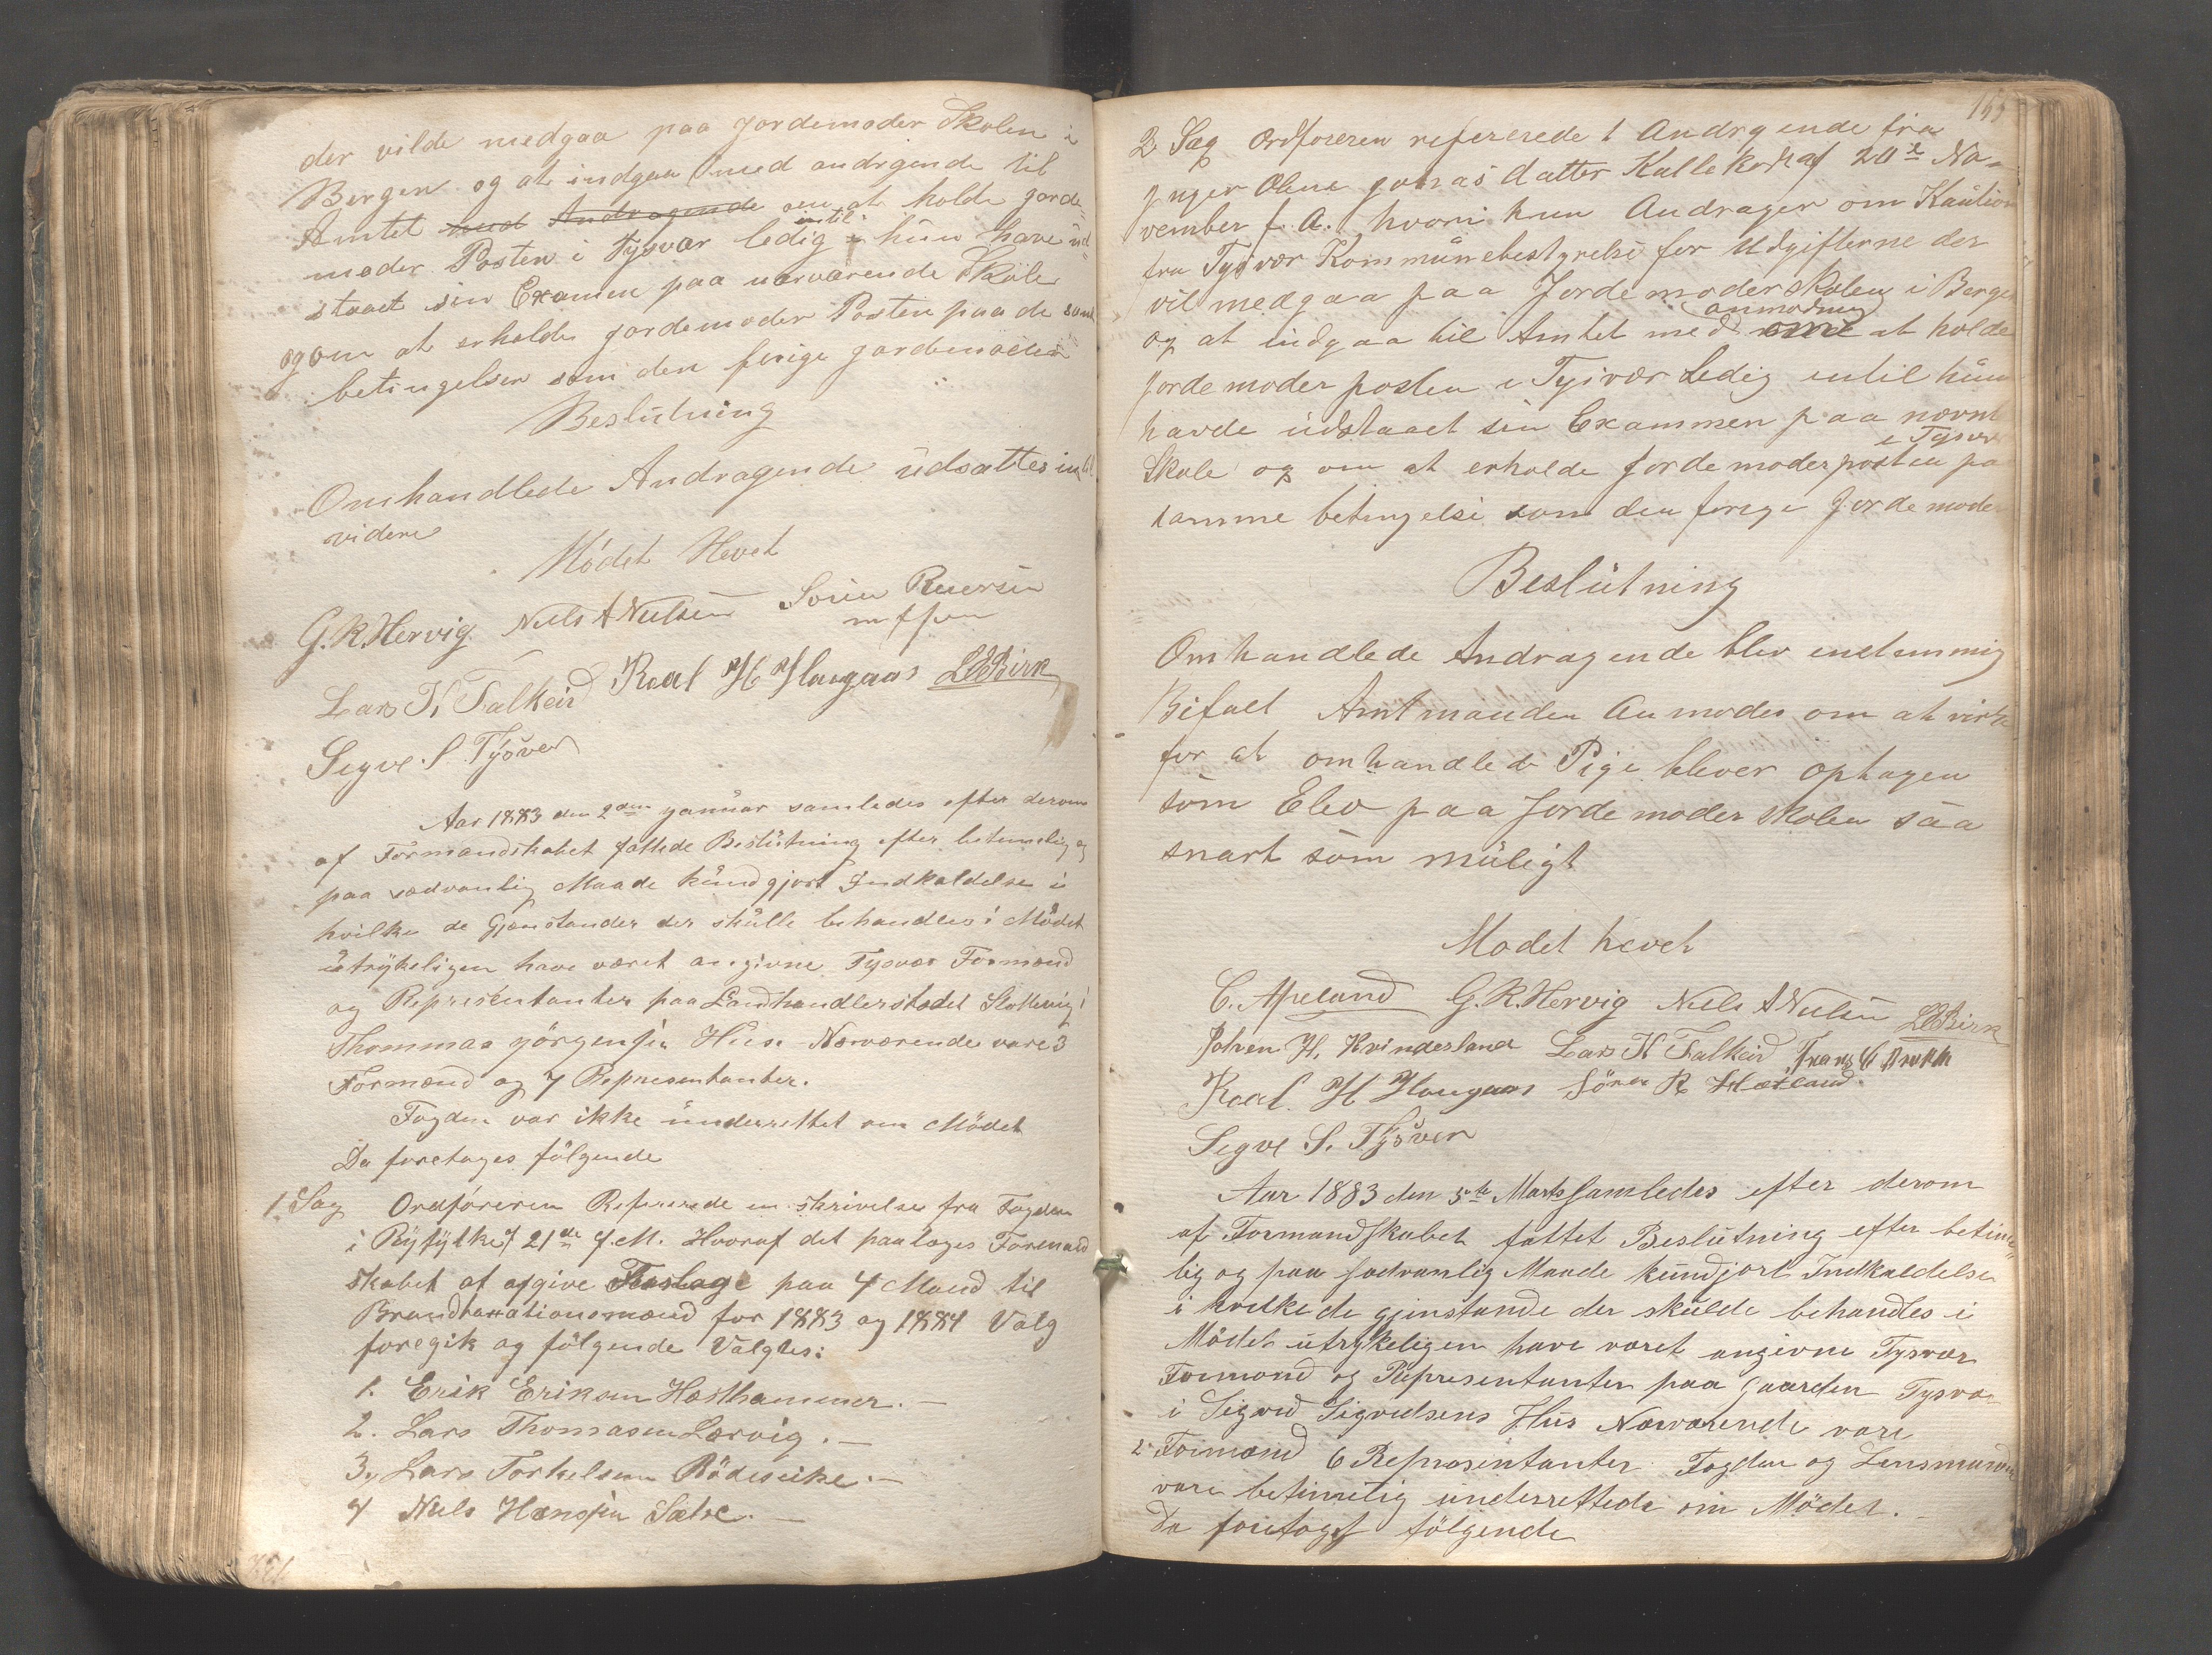 der vilde medgaa paa Jordemoder Skolen i
Bergen og at indgaa med andragende til
Amtet med Andragende om at holde Jorde=
moder Posten i Tysvær ledig intil hun have ud=
staaet sin Examen paa nærværende Skole
og om at erholde Jordemoder Posten paa de sam
betingelser som den forige Jordemoder
Beslutning
Omhandlede Andragende udsættes indtil
videre
Mödet Hevet
G. K. Hervig Niels A Nielsen Sörin Reiersen
Lars K Falkeid Roal H Haugaas L E Birk
Segve S. Tysver
Aar 1883 den 2den Januar samledes efter derom
af Formandskabet fattede Beslutning efter betimelig og
paa sædvanlig Maade kundgjort Indkaldelse i
hvilke de Gjenstander der skulle behandles i Mödet
utrykeligen have været angivne Tysvær Formænd
og Representanter paa Landhandlerstedet Slottevig i
Thommas Jörgensen Hus Nærværende vare 3
Formænd og 7 Representanter.
Fogden var ikke underrettet om Mödet
Da foretages fölgende
1 Sag Ordföreren Refererede en skrivelse fra Fogden
i Ryfylke af 21de f. M. Hvoraf det paalæges Formand
skabet at afgive Forslag paa 4 Mænd til
Brandtaxationsmænd for 1883 og 1884 Valg
foregik og fölgende Valgtes:
1. Erik Eriksen Hæsthammer. —
2. Lars Thomasen Lærvig. —
3. Lars Torkelsen Rödseike. —
4 Niels Hansen Sætre. —
2 Sag Ordföreren refererede 1 Andragende fra
Inger Oline Jonasdatter Kallekodt af 20de No=
vember f. A. hvori hun Andrager om Kaution
fra Tysvær Kommunebestyrelse for Udgifterne der
vil medgaa paa Jordemoderskolen i Bergen
anmodning
og at indgaa til Amtet med om at holde
Jordemoderposten i Tysvær Ledig intil hun
havde udstaaet sin Exammen paa nævnt
i Tysvær
Skole og om at erholde Jordemoderposten pa
samme betingelse som den forige Jordemode
Beslutning
Omhandlede Andragende blev enstemmig
Bifalt Amtmanden Anmodes om at virke
for at omhandlede Pige blever optagen
som Elev paa Jordemoderskolen saa
snart som muligt
Mødet hævet
C. Apeland G. K. Hervig Niels A Nielsen L E Birk
Johan H. Kvinderland Lars K Falkeid
Roal. H Haugaas Sören R Hætland.
Segve S. Tysver
Aar 1883 den 5te Marts samledes efter derom
af Formandskabet fattet Beslutning efter betime=
lig og paa sædvanlig Maade kundjort Indkaldelse
i hvilke de gjenstande der skulde behandles i
Mödet utrykeligen have været angivne Tysvær
Formænd og Representanter paa Gaarden Tysvær
i Sigvid Sigvidsens Hus Nærværende vare
2 Formænd 6 Representanter Fogden og Lensmanden
vare betimelig underrettede om Mödet. —
Da foretoges fölgende